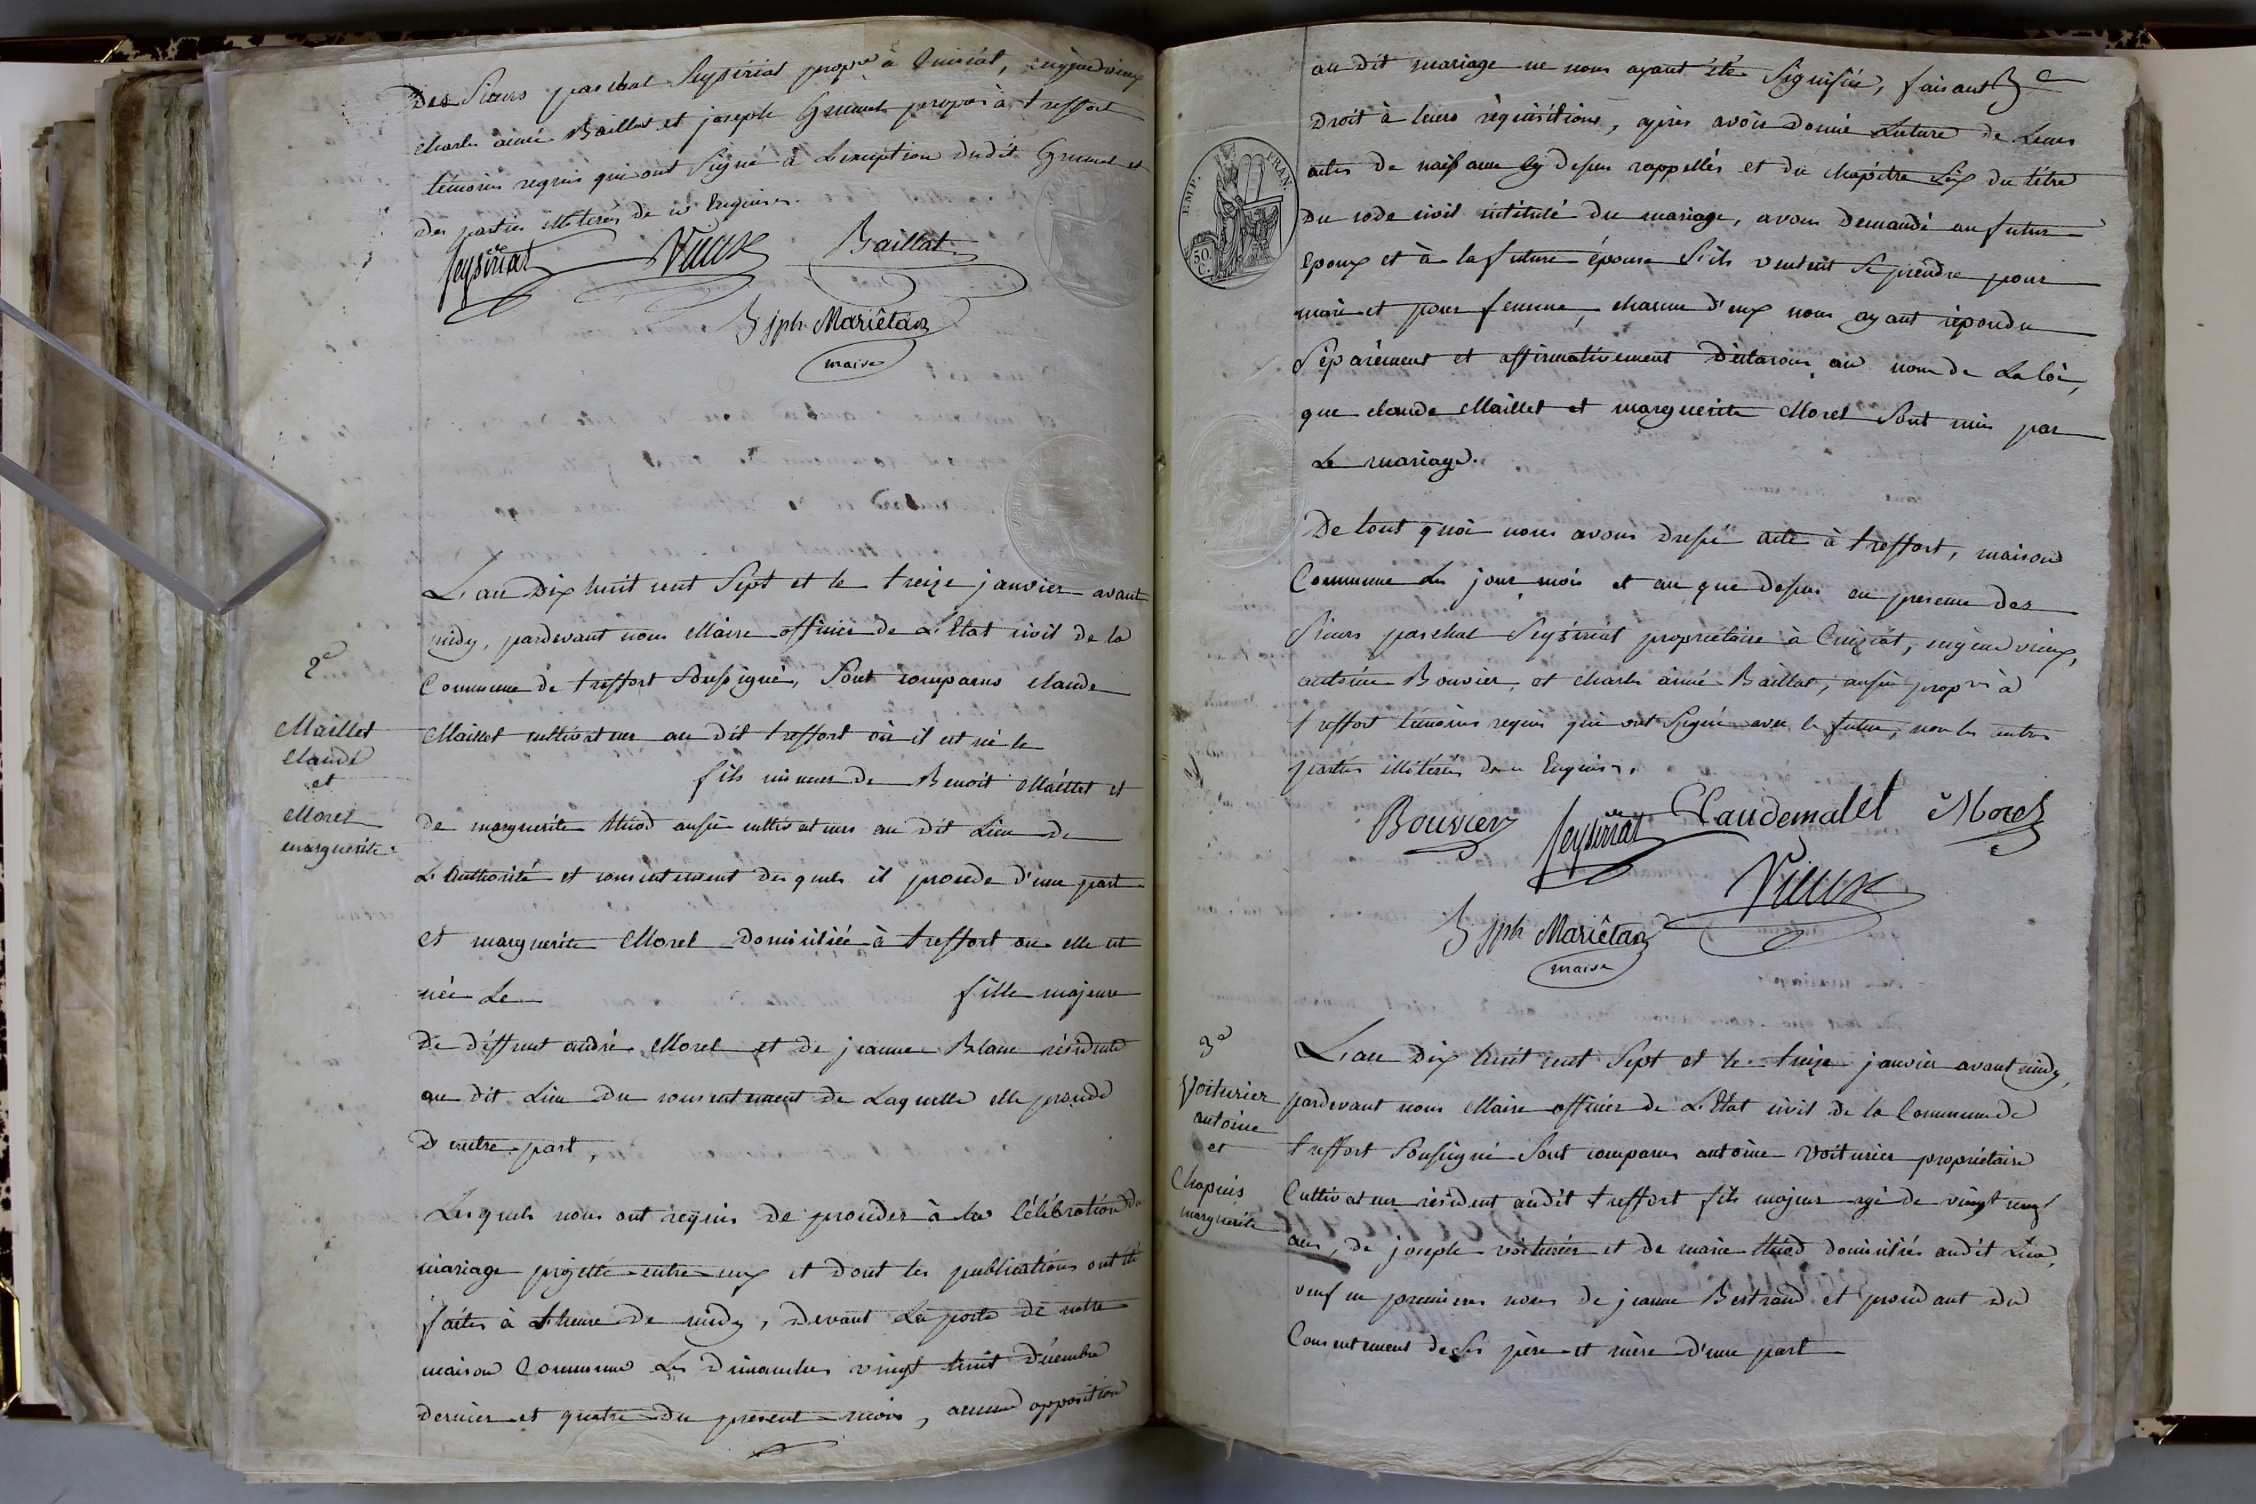 Des Sieurs paschal Seysiriat propre à Cuiziat, eugène vieux
charles aimé Baillat et joseph Grumet propres à treffort
témoins requis qui ont signé à L'exception dudit Grumet et
des parties illiterées de ce Enquises.
Seysiriat Vieux Baillat
B jph Mariêtan
maire
L'an dix huit cent Sept et le treize janvier avant
midy, pardevant nous Maire officier de L'Etat civil de la
Commune de treffort Soussigné, Sont comparus claude
2e
Maillet
claude
et
Morel
marguerite
Maillet cultivateur au dit treffort où il est né le
fils mineur de Benoit Maillet et
de marguerite Miod aussi cultivateurs au dit Lieu de
L'authorité et consentement des quels il procede d'une part
et marguerite Morel domiciliée à treffort ou elle est
née Le fille majeure
De deffunt andré Morel et de jeanne Blanc résidente
au dit Lieu du consentement de Laquelle elle procede
D'autre part,
Lesquels nous ont requis de proceder à la célébration du
mariage projetté entre eux et dont les publications ont été
faites à L'heure de midy, devant La porte de notre
maison Commune Les dimanches vingt huit décembre
dernier et quatre du present mois, aucune opposition
au dit mariage ne nous ayant été Signifiée, faisant
EMP. FRAN.
50 C.
Droit à leurs réquisitions, après avoir donné Lecture de Leurs
actes de naissance cy dessus rappellés et du chapitre Six du titre
Du code civil intitulé du mariage, avons demandé au futur
Epoux et à la future épouse S'ils veulent se prendre pour
mari et pour femme, chacun d'eux nous ayant répondu
Séparément et affirmativement Déclarons au nom de La loi,
que claude Maillet et marguerite Morel Sont unis par
Le mariage.
De tout quoi nous avons dressé acte à treffort, maison
Commune Les jour, mois et an que dessus en presence des
Sieurs paschal Seysiriat propriétaire à Cuiziat, eugène vieux,
antoine Bouvier, et charles aimé Baillat, aussi propres à
treffort témoins requis qui ont Signé avec le futur, non les autres
parties illiterées de ce Enquises.
Bouvier Seysiriat Claudemalet Morel
Vieux
B jph Mariêtan
maire
3e
Voiturier
antoine
et
Chapuis
marguerite
L'an Dix huit cent Sept et le treize janvier avant midy,
pardevant nous Maire officier de L'Etat civil de la Commune de
treffort Soussigné Sont comparus antoine Voiturier propriétaire
Cultivateur résident audit treffort fils majeur agé de vingt neuf
ans, de joseph voiturier et de marie Miod domiciliés audit Lieu,
veuf en premieres noces de jeanne Bertrand et procedant du
Consentement de ses père et mère d'une part